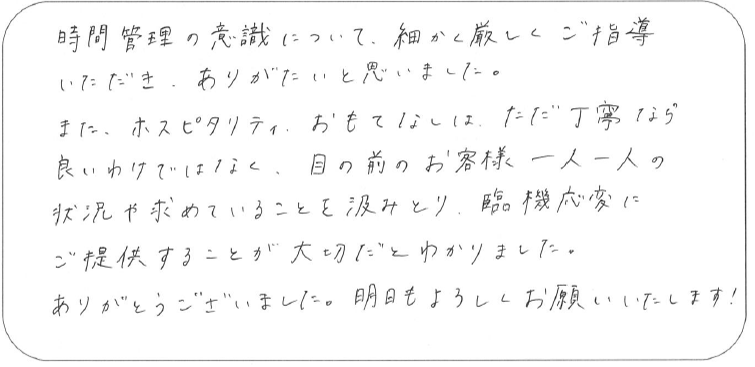 時間管理の意識について、細かく厳しくご指導
いただき、ありがたいと思いました。
また、ホスピタリティ、おもてなしは、ただ丁寧なら
良いわけではなく、目の前のお客様一人一人の
状況や求めていることを汲みとり、臨機応変に
ご提供することが大切だとわかりました。
ありがとうございました。明日もよろしくお願いいたします!